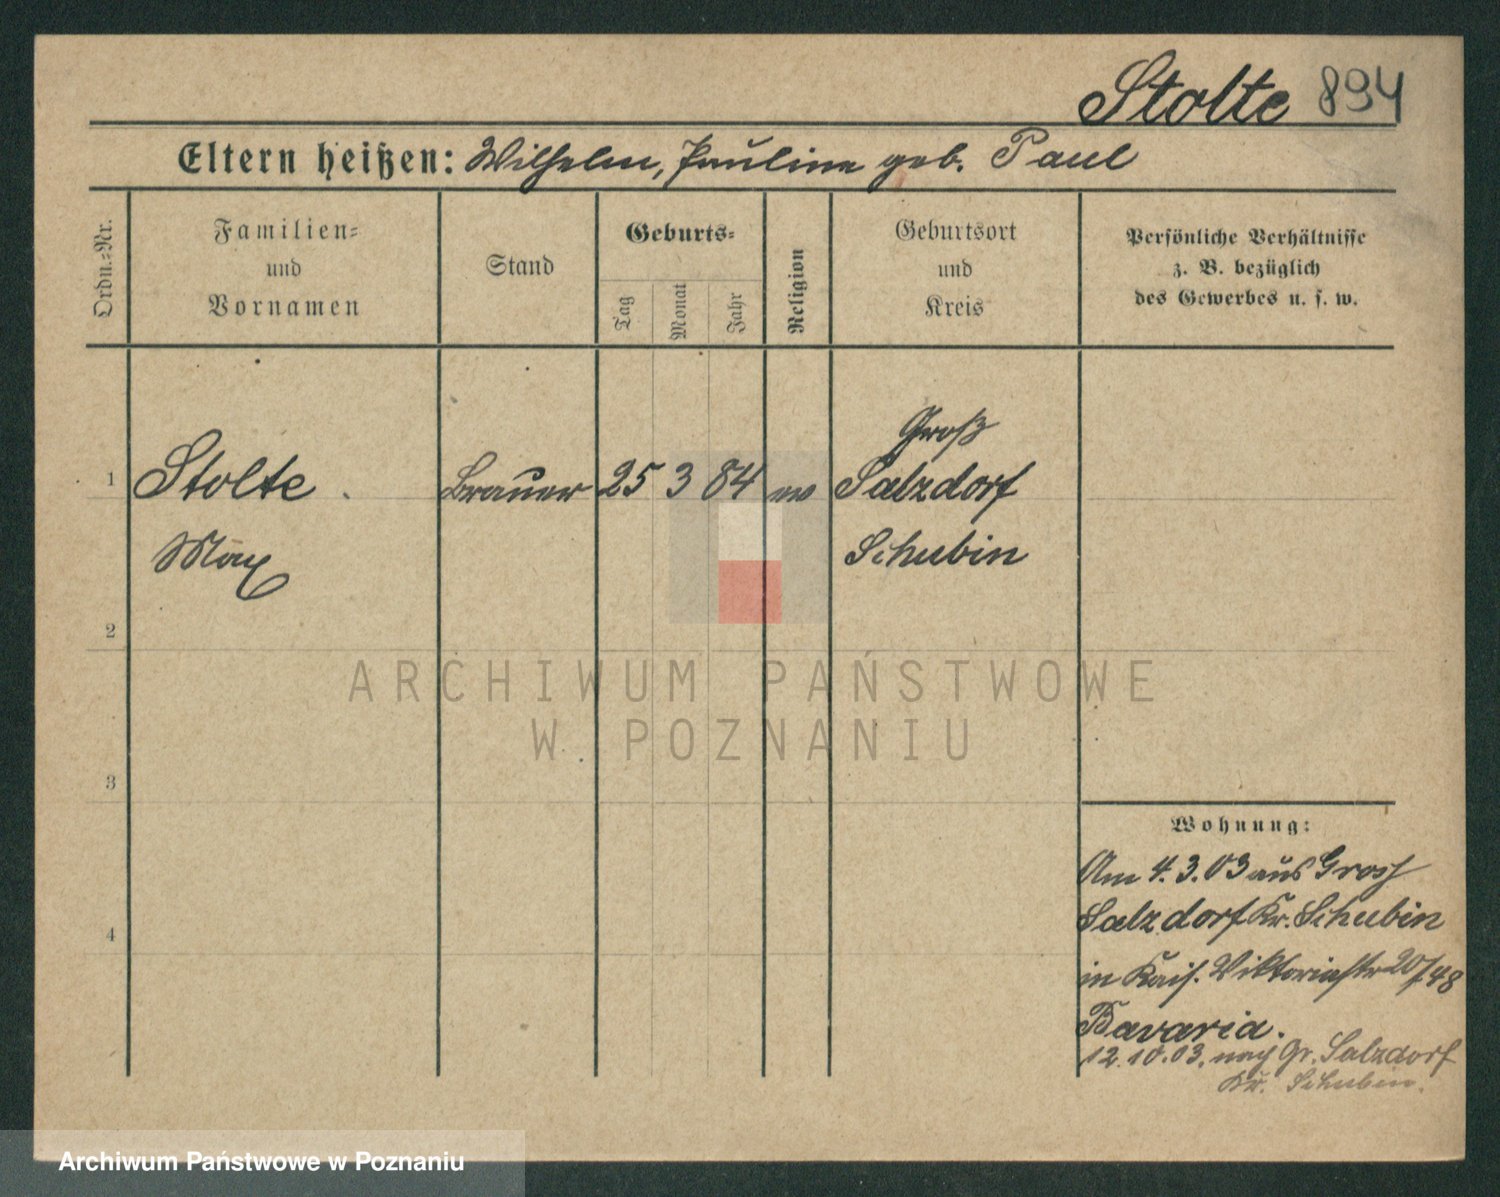 Stolte 894
Eltern heißen: Wilhelm, Pauline geb. Paul
Ordn.-Nr.
Familien-
und
Vornamen
Stand
Geburts-
Tag
Monat
Jahr
Religion
Geburtsort
und
Kreis
Persönliche Verhältnisse
z. B. bezüglich
des Gewerbes u. s. w.
1
Stolte
Max
Brauer
25 3 84
ev
Groß
Salzdorf
Schubin
2
3
4
Wohnung:
Am 4.3.03 aus Gross
Salzdorf Kr. Schubin
in Kais. Viktoriastr 20/48
Bavaria.
12.10.03. nach Gr. Salzdorf
Kr. Schubin.
ARCHIWUM PAŃSTWOWE
W POZNANIU
Archiwum Państwowe w Poznaniu